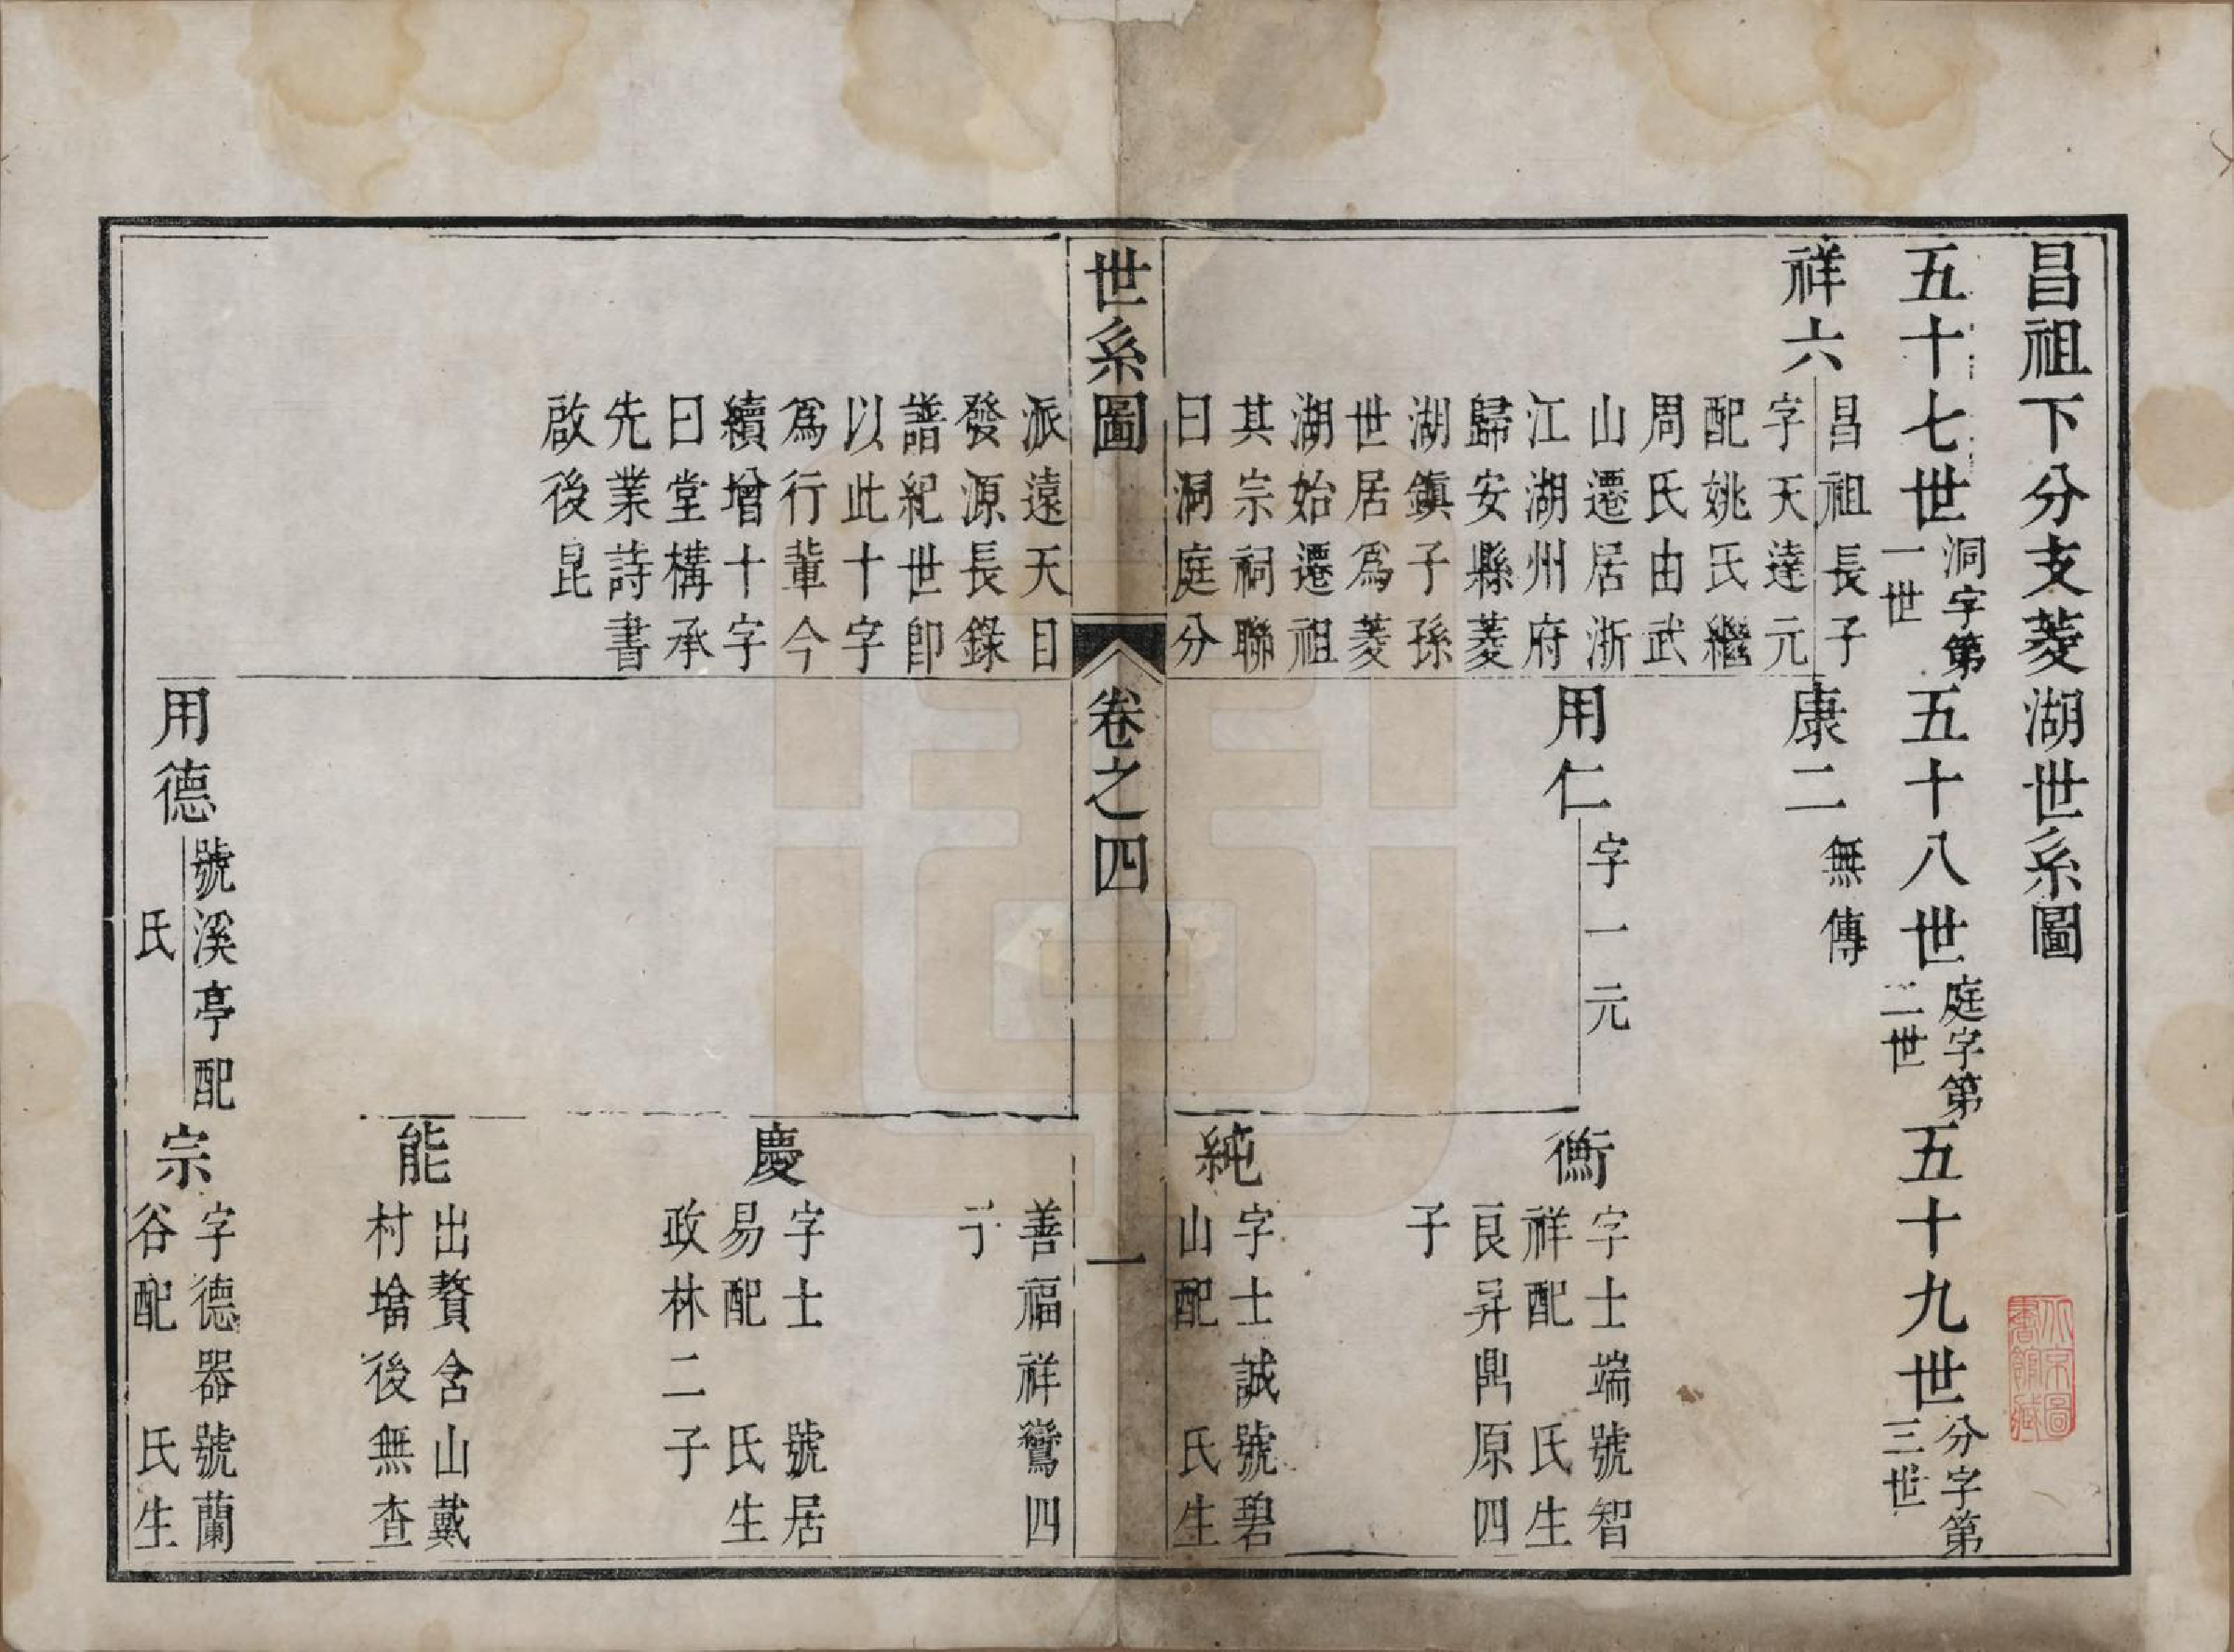 昌祖下分支菱湖世系圖
五十七世 洞字第一世 五十八世 庭字第二世 五十九世 分字第三世
祥六
昌祖長子
字天達元
配姚氏繼
周氏由武
山遷居浙
江湖州府
歸安縣菱
湖鎮子孫
世居爲菱
湖始遷祖
其宗祠聯
曰洞庭分
派遠天目
發源長錄
譜紀世卽
以此十字
爲行輩今
續增十字
曰堂構承
先業詩書
啟後昆
康二
無傳
用仁
字一元
衡
字士端號智
祥配 氏生
良昇鼎原四
子
純
字士誠號碧
山配 氏生
世系圖 卷之四 一
善福祥鸞四
子
慶
字士 號居
易配 氏生
政林二子
能
出贅含山戴
村墖後無查
用德
號溪亭配
氏
宗
字德器號蘭
谷配 氏生
北京圖
書館藏